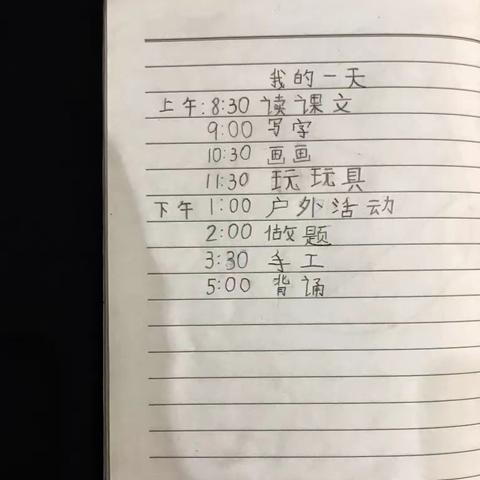 我的一天
上午:8:30 读课文
9:00 写字
10:30 画画
11:30 玩玩具
下午 1:00 户外活动
2:00 做题
3:30 手工
5:00 背诵